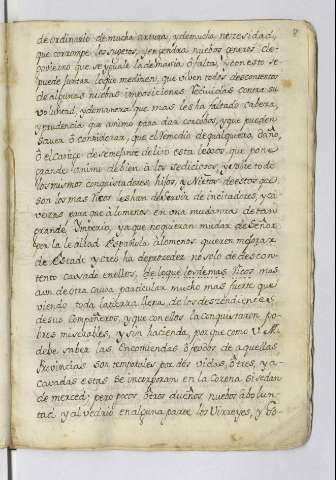 8
de ordinario de mucha artura, y de mucha necesidad,
que corrompe los sugetos, y engendra nuebos generos de
govierno que se siguió la demasia ó falta, y con esto se
puede juntar lo que me dizen, que viven todos descontentos
de algunas nuebas imposiciones recividas contra su
voluntad, y de manera que mas les ha faltado cabeza,
y prudencia que animo para dar con todos, y que pueden
el remedio de qualquiera daño,
de semejante delito esta lexos, que pone
grande animo de bien á los sediciosos, y sobre todo
los mismos conquistadores, hijos, y Nietos de estos que
son los mas ricos les han de servir de incitadores, y ca
vezas para que á lo menos en una mudanza de tan
grande Imperio, ya que no quieran mudar de Señor
por la lealtad Española á lo menos quieren mejorar
de Estado y creo ha de proceder no solo de descon
tento causado en ellos, de lo que los demas ricos mas
aun de otra causa particular mucho mas fuerte que
viendo toda la tierra llena de los descendientes,
de sus Compañeros, y que con ellos la conquistaron po
bres miserables, y sin hacienda, porque como V. M.
debe saber las Encomiendas ó feodos de aquellas
Provincias son temporales por dos vidas, ó tres, y a
cavadas estas se incorporan en la Corona si se dan
de merced, pero pocos otros dueños nuebos á bolun
tad y alvedrio en alguna parte los Virreyes, y Go-